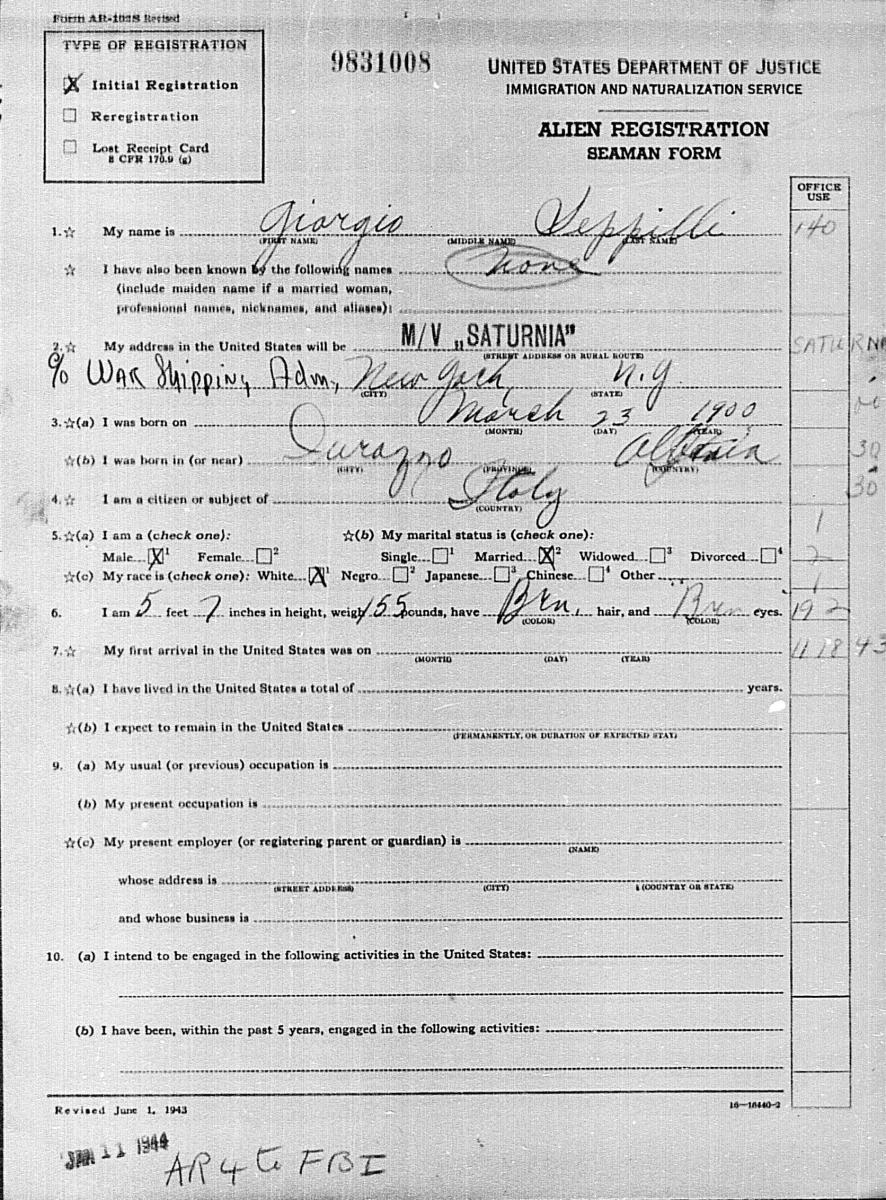 Form AR-102S Revised
TYPE OF REGISTRATION
X Initial Registration
Reregistration
Lost Receipt Card
8 CFR 170.9 (g)
9831008
UNITED STATES DEPARTMENT OF JUSTICE
IMMIGRATION AND NATURALIZATION SERVICE
ALIEN REGISTRATION
SEAMAN FORM
OFFICE USE
1.☆ My name is Giorgio Seppilli 140
(FIRST NAME) (MIDDLE NAME) (LAST NAME)
☆ I have also been known by the following names None
(include maiden name if a married woman,
professional names, nicknames, and aliases):
2.☆ My address in the United States will be M/V „SATURNIA" SATURNIA
(STREET ADDRESS OR RURAL ROUTE)
c/o War Shipping Adm., New York, N.Y.
(CITY) (STATE)
3.☆(a) I was born on March 23 1900 00
(MONTH) (DAY) (YEAR)
☆(b) I was born in (or near) Durazzo Albania 30
(CITY) (PROVINCE) (COUNTRY)
4.☆ I am a citizen or subject of Italy 30
(COUNTRY)
5.☆(a) I am a (check one): ☆(b) My marital status is (check one): 1
Male X 1 Female 2 Single 1 Married X 2 Widowed 3 Divorced 4 2
☆(c) My race is (check one): White X 1 Negro 2 Japanese 3 Chinese 4 Other 1
6. I am 5 feet 7 inches in height, weigh 155 pounds, have Brn. hair, and Brn eyes. 192
(COLOR) (COLOR)
7.☆ My first arrival in the United States was on 11 18 43
(MONTH) (DAY) (YEAR)
8.☆(a) I have lived in the United States a total of years.
☆(b) I expect to remain in the United States
(PERMANENTLY, OR DURATION OF EXPECTED STAY)
9. (a) My usual (or previous) occupation is
(b) My present occupation is
☆(c) My present employer (or registering parent or guardian) is
(NAME)
whose address is
(STREET ADDRESS) (CITY) (COUNTRY OR STATE)
and whose business is
10. (a) I intend to be engaged in the following activities in the United States:
(b) I have been, within the past 5 years, engaged in the following activities:
Revised June 1, 1943 16—16440-2
JAN 11 1944
AR4 to FBI